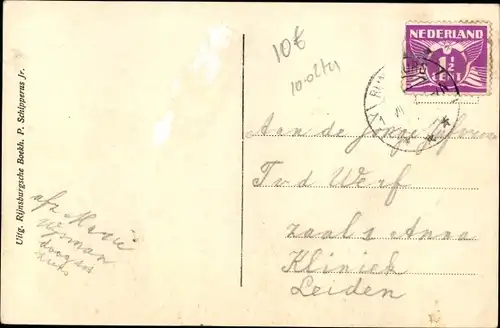 Uitg. Rijnsburgsche Boekh. P. Schipperus Jr.
10€
NEDERLAND
1½
CENT
Aan de Jonge Juffrouw
T v d Werf
zaal 2 Anna
Kliniek
Leiden
afz Marie